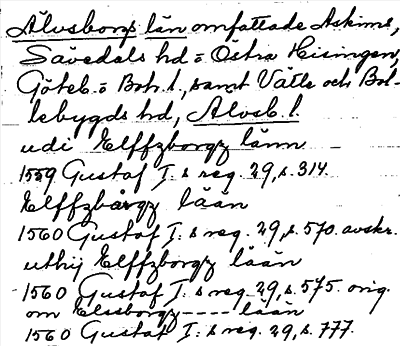 Älvsborgs län omfattade Askims,
Sävedals hd o Östra Hisingen,
Göteb. o Boh. l., samt Vätle och Bol-
lebygds hd, Älvsb. l.
udi Elffzborgz länn
1559 Gustaf I: s reg. 29, s. 314.
Elffzbårgz lään
1560 Gustaf I: s reg. 29, s. 570. avskr.
uthij Elffzborgz lään
1560 Gustaf I: s reg. 29, s. 575. orig.
om Elssborgz ---- lään
1560 Gustaf I: s reg. 29, s. 777.